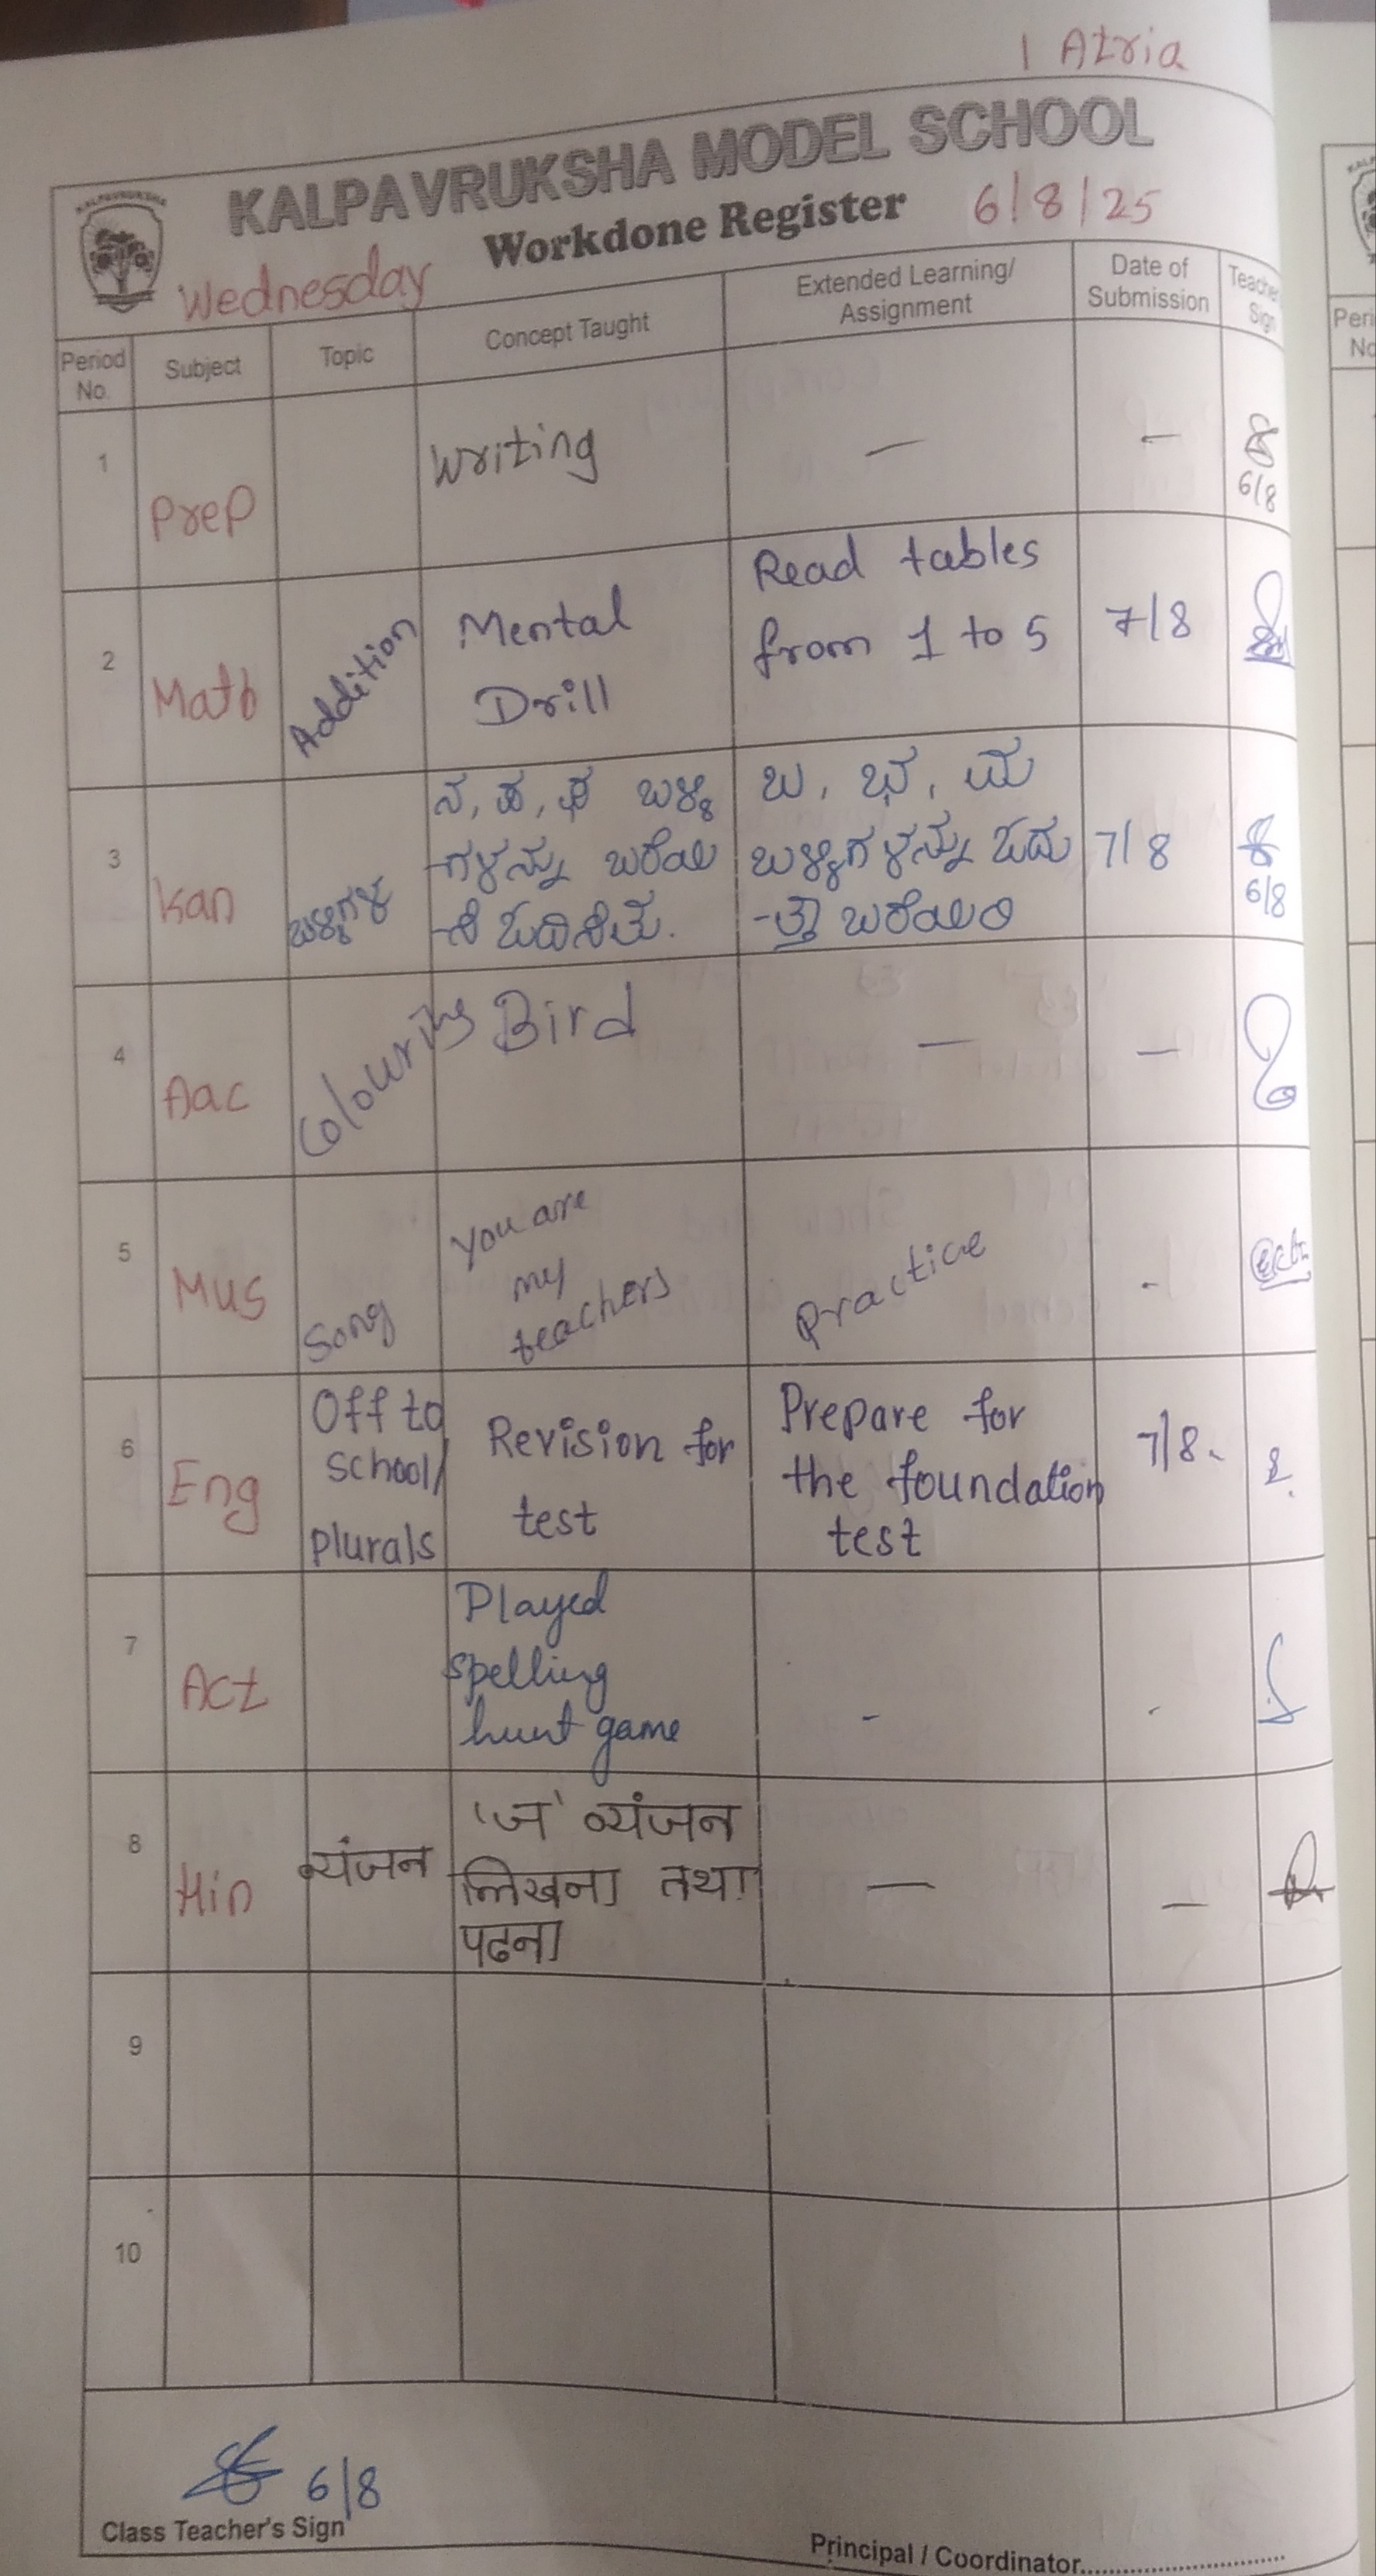 1 Atria
KALPAVRUKSHA MODEL SCHOOL
KALPAVRUKSHA
Workdone Register 6/8/25
Wednesday
Period No. Subject Topic Concept Taught Extended Learning/ Assignment Date of Submission Teacher Sign
1 Prep Writing — — 6/8
2 Math Addition Mental Drill Read tables from 1 to 5 7/8
3 Kan ಬಳ್ಳಿಗಳ
ಬಳ್ಳಿ
-ಗಳನ್ನು ಬರೆಯಿ
-ಸಿ ಓದಿಸಿತು.
ಬ, ಭ, ಮ
ಬಳ್ಳಿಗಳನ್ನು ಓದು
-ತ್ತಾ ಬರೆಯಿರಿ
7/8
6/8
4 Aac Colouring Bird — —
5 Mus Song You are my teachers Practice -
6 Eng Off to school/ plurals Revision for test Prepare for the foundation test 7/8.
7 Act Played spelling hunt game - -
8 Hin व्यंजन 'ज' व्यंजन लिखना तथा पढना — —
9
10
6/8
Class Teacher's Sign
Principal / Coordinator
Peri
No